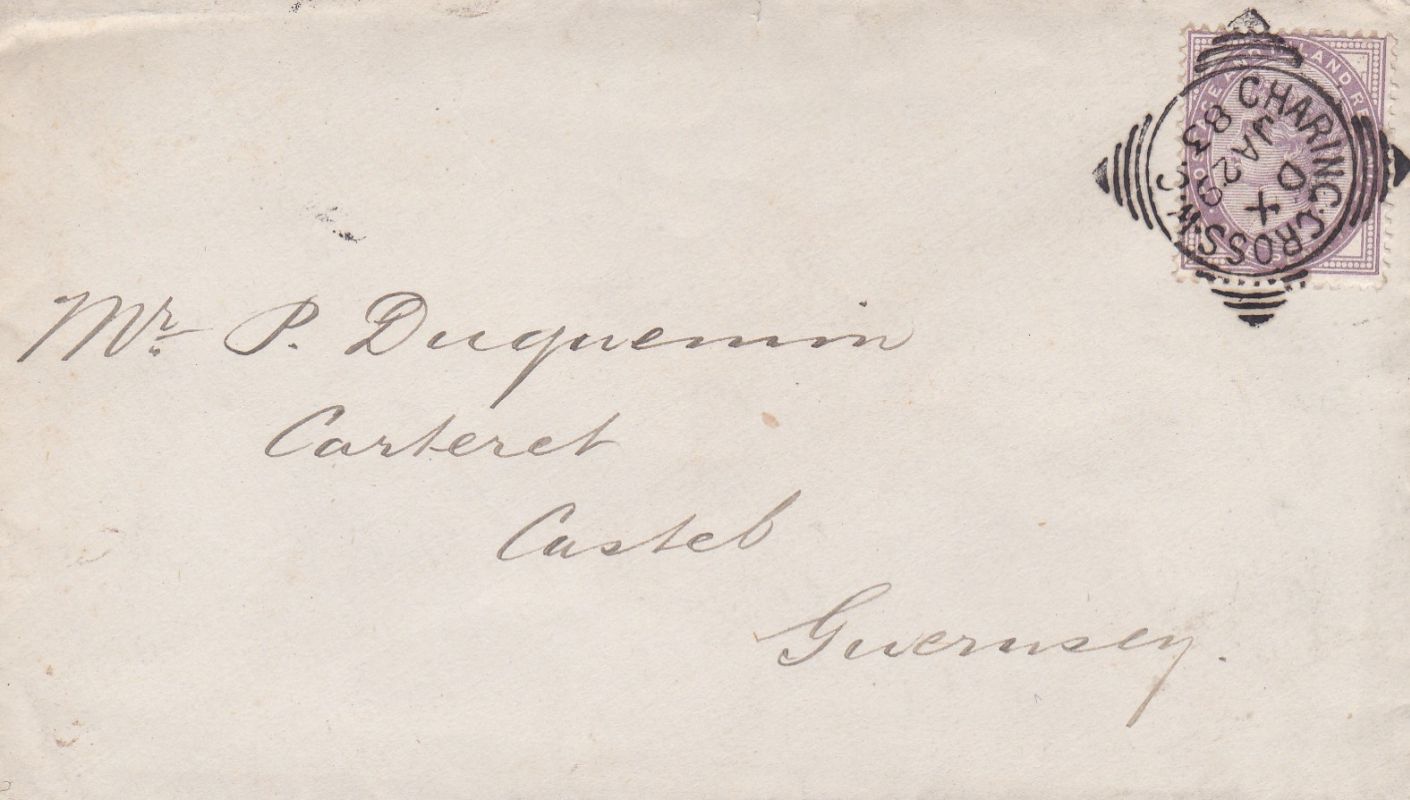 CHARING·CROSS·W·C
D X
JA 29
83
Mr. P. Duquemin
Carteret
Castel
Guernsey.